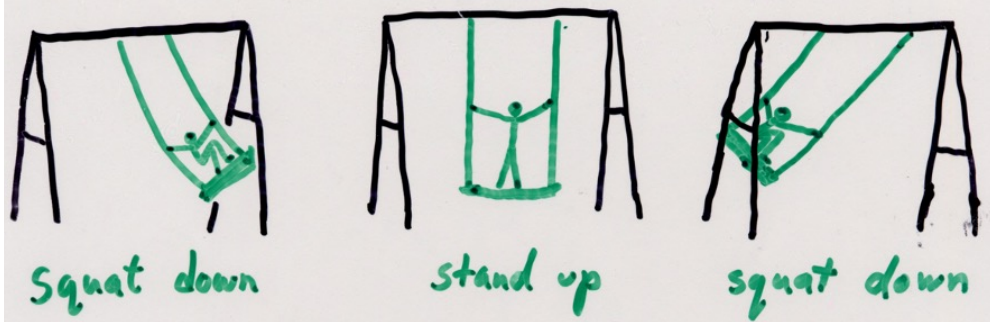 squat down
stand up
squat down